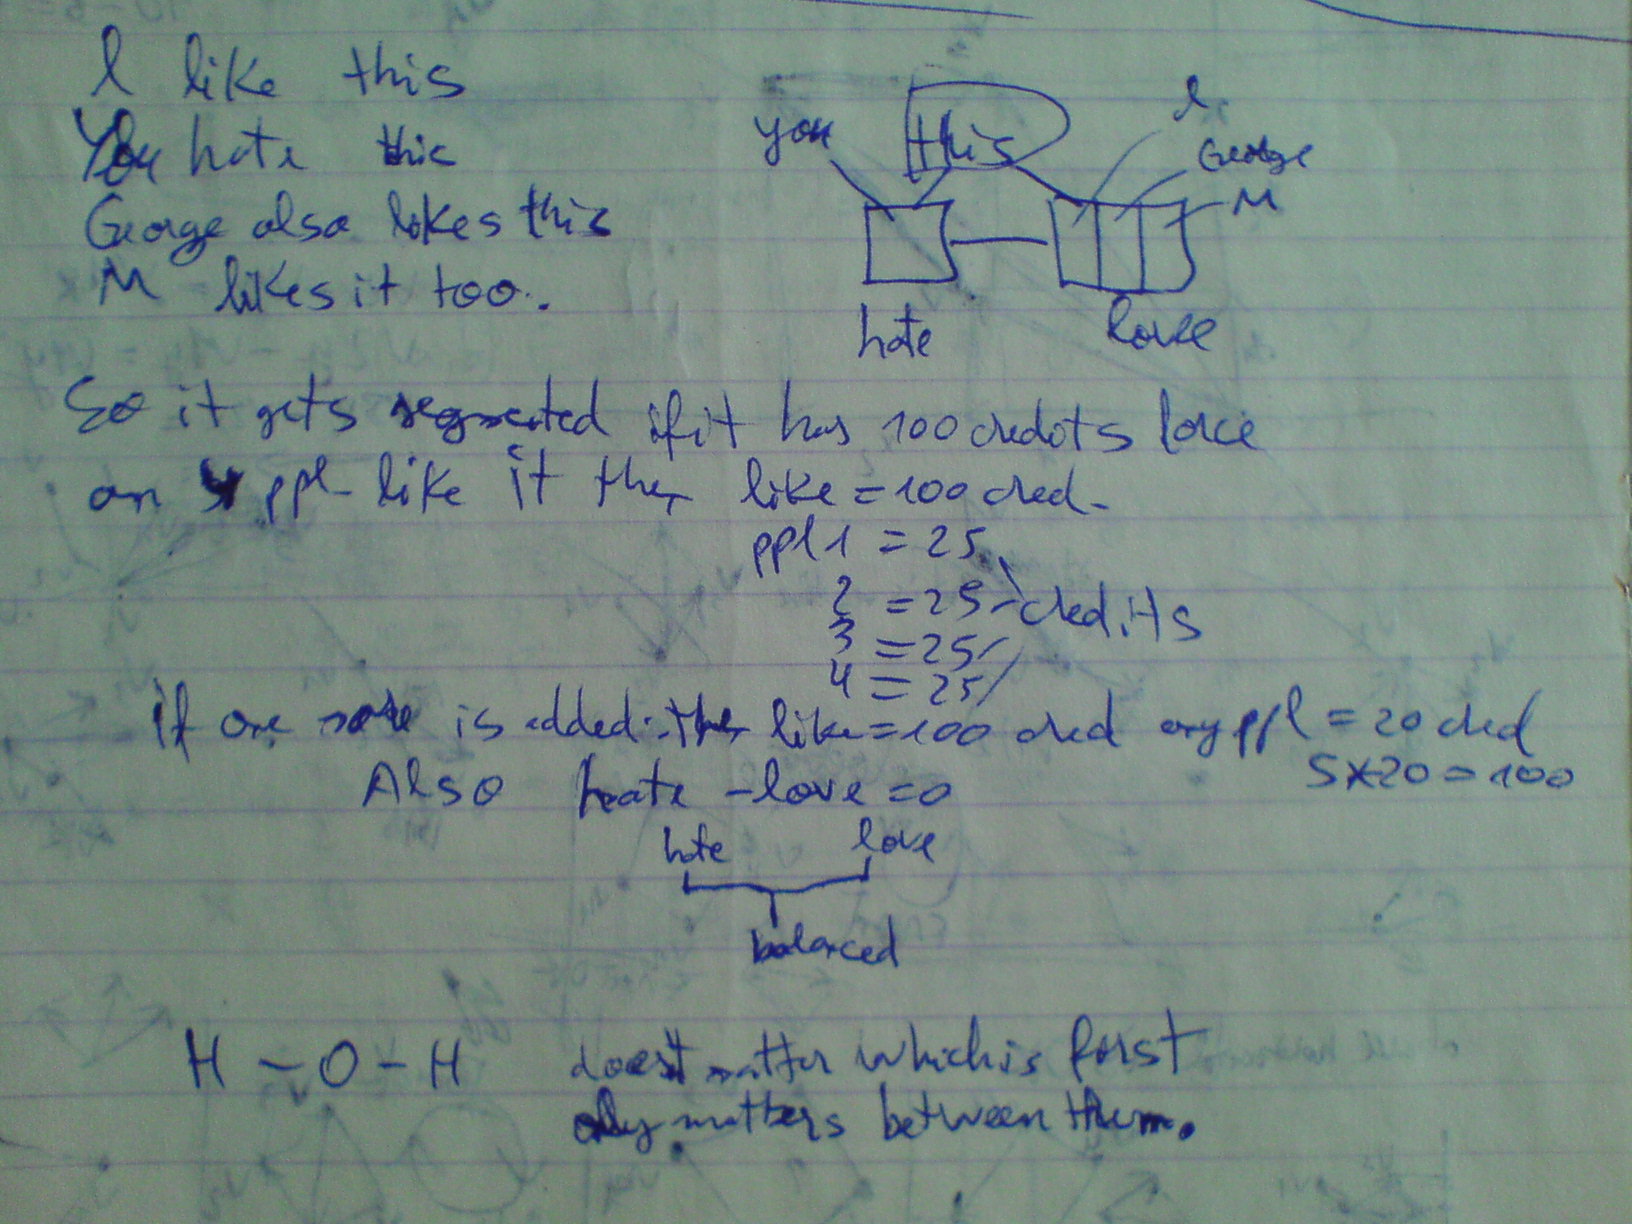 I like this
You hate this
George also likes this
M likes it too.
you this I
George
M
hate love
So it gets segmented if it has 100 credits force
an 4 ppl like it then like = 100 cred.
ppl 1 = 25
2 = 25 credits
3 = 25
4 = 25
if one more is added. then like = 100 cred any ppl = 20 cred
5x20 = 100
Also hate - love = 0
hate love
balanced
H - O - H doesn't matter which is first
only matters between them.